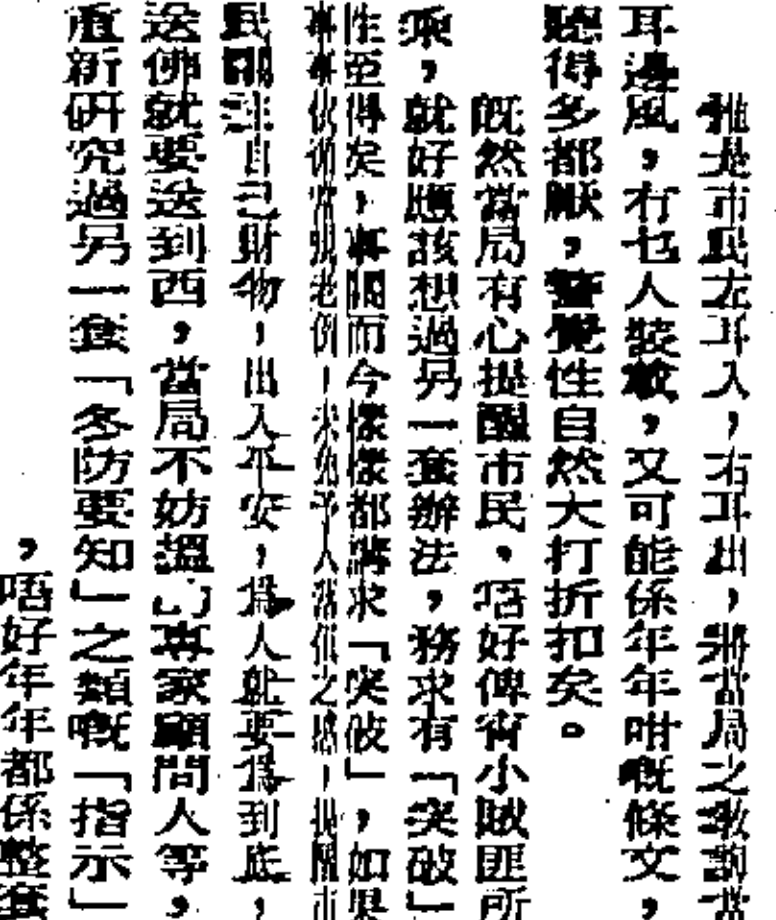 是市民左耳入,右耳出,將當局之教訓當
耳邊風,冇乜人裝載,又可能係年年咁嘅條文,
聽得多都厭,警覺性自然大打折扣矣。
既然當局有心提醒市民,唔好俾宵小賊匪所
乘,就好應該想過另一套辦法,務求有「突破」
性至得矣,事關而今樣樣都講求「突破」,如果
事事依循常規老例,未免予人落伍之感,提醒市
民關注自己財物,出入平安,為人就要為到底,
送佛就要送到西,當局不妨搵啲專家顧問人等,
重新研究過另一套「冬防要知」之類嘅「指示」
,唔好年年都係整套